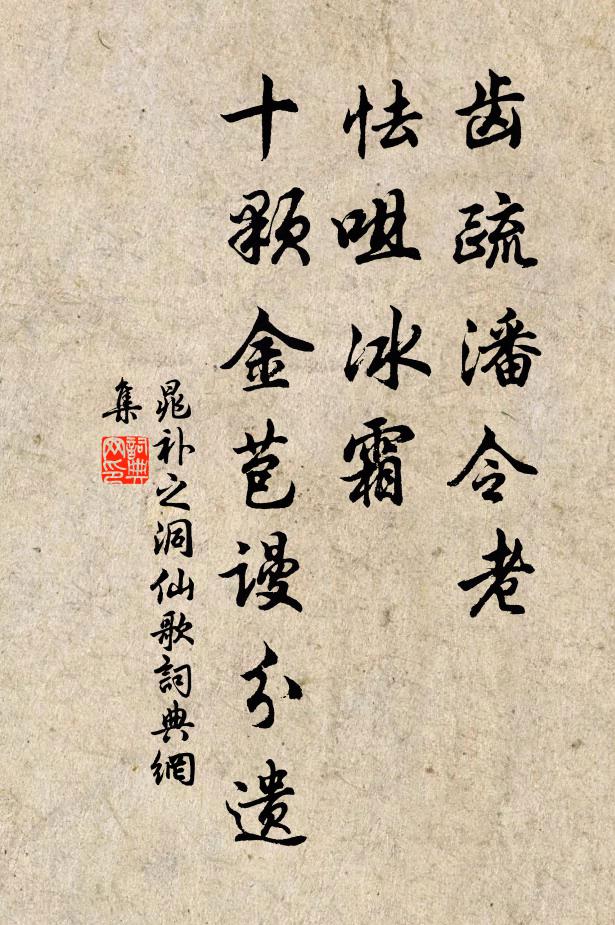 齿疏潘令老
怯咀冰霜
十颗金苞谩分遗
晁补之洞仙歌詞典網
集
詞典
网印